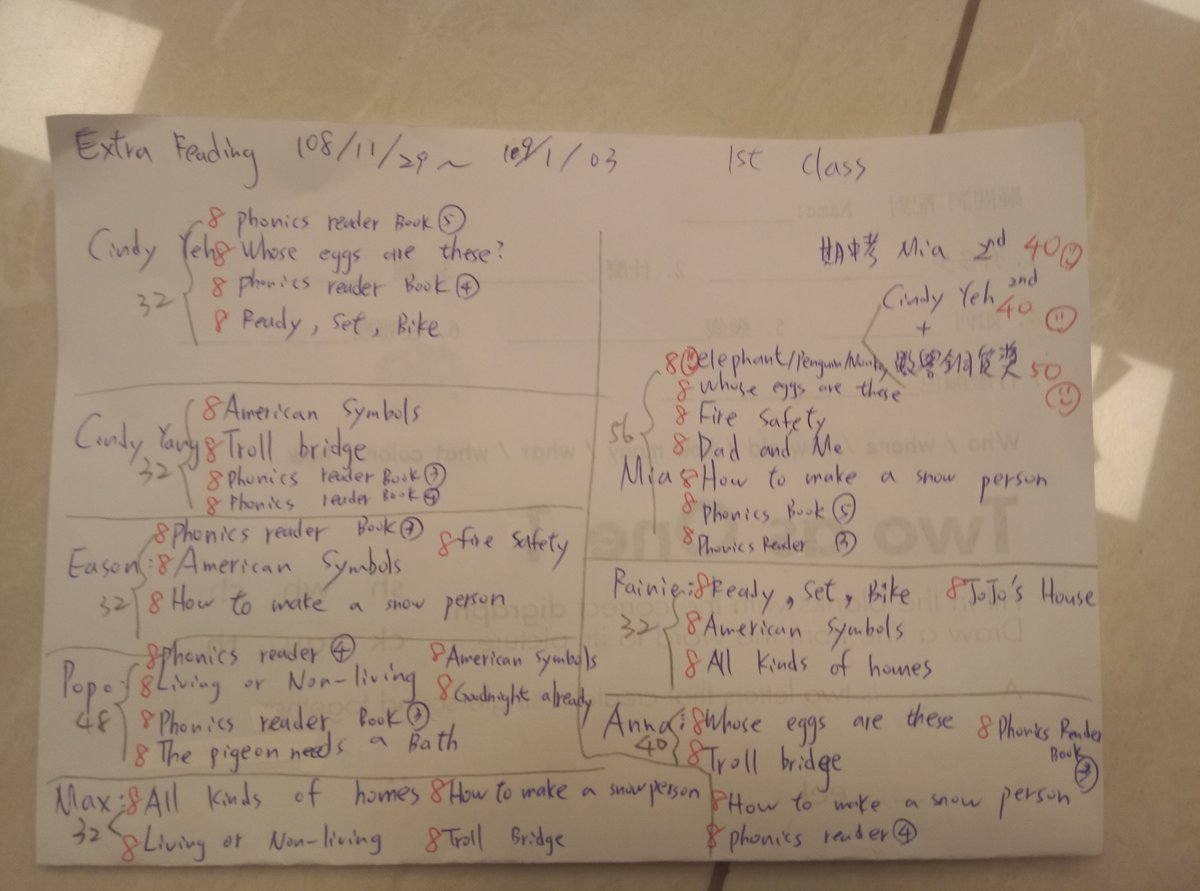 Extra Reading 108/11/29 ~ 109/1/03 1st Class
Cindy Yeh 32
8 phonics reader Book ⑤
8 Whose eggs are these?
8 phonics reader Book ④
8 Ready, Set, Bike
Cindy Yang 32
8 American Symbols
8 Troll bridge
8 Phonics reader Book ③
8 Phonics reader Book ④
Eason: 32
8 Phonics reader Book ③ 8 Fire Safety
8 American Symbols
8 How to make a snow person
Popo: 48
8 phonics reader ④ 8 American Symbols
8 Living or Non-living 8 Goodnight already
8 Phonics reader Book ③
8 The pigeon needs a Bath
Max: 32
8 All kinds of homes 8 How to make a snow person
8 Living or Non-living 8 Troll Bridge
期中考 Mia 2nd 40
Cindy Yeh 2nd 40
+
50
Mia 56
8 elephant/Penguin/
8 Whose eggs are these
8 Fire Safety
8 Dad and Me
8 How to make a snow person
8 Phonics Book ⑤
8 Phonics Reader ③
Rainie: 32
8 Ready, Set, Bike 8 JoJo's House
8 American Symbols
8 All kinds of homes
Anna: 40
8 Whose eggs are these 8 Phonics Reader Book ③
8 Troll bridge
8 How to make a snow person
8 phonics reader ④